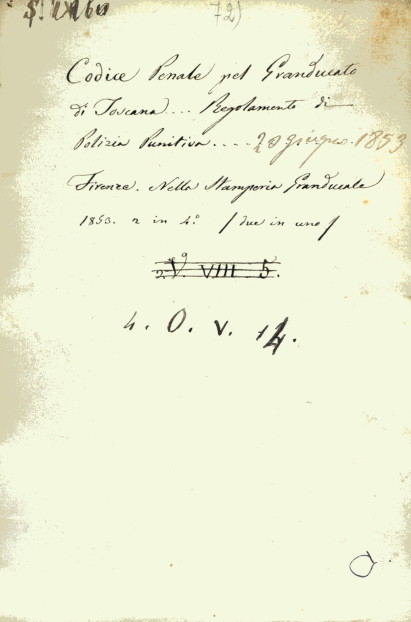 72)
Codice Penale pel Granducato
di Toscana... Regolamento di
Polizia Punitiva.... 20 giugno. 1853
Firenze. Nella Stamperia Granducale
1853. 2 in 4.° / due in uno /
2. V. VIII 5.
4. O. V. 14.